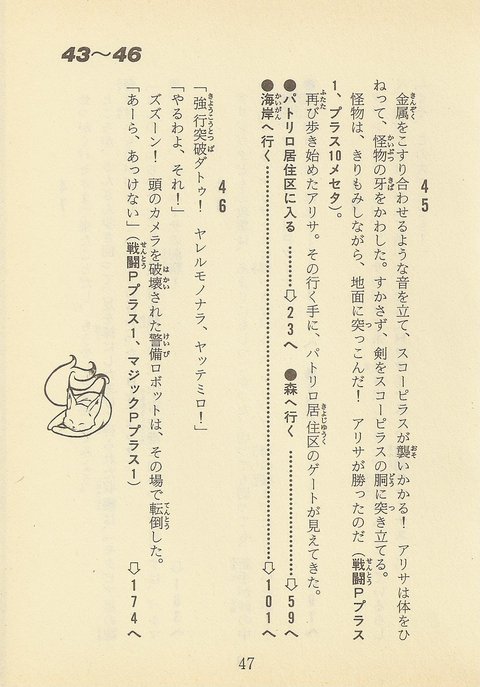 43〜46
45
金属をこすり合わせるような音を立て、スコーピラスが襲いかかる! アリサは体をひ
ねって、怪物の牙をかわした。すかさず、剣をスコーピラスの胴に突き立てる。
怪物は、きりもみしながら、地面に突っこんだ! アリサが勝ったのだ(戦闘Pプラス
1、プラス10メセタ)。
再び歩き始めたアリサ。その行く手に、パトリロ居住区のゲートが見えてきた。
●パトリロ居住区に入る ……⇩23へ ●森へ行く ……………⇩59へ
●海岸へ行く ………………………………………⇩101へ
46
「強行突破ダトゥ! ヤレルモノナラ、ヤッテミロ!」
「やるわよ、それ!」
ズズーン! 頭のカメラを破壊された警備ロボットは、その場で転倒した。
「あーら、あっけない」(戦闘Pプラス1、マジックPプラス1) ⇩174へ
47